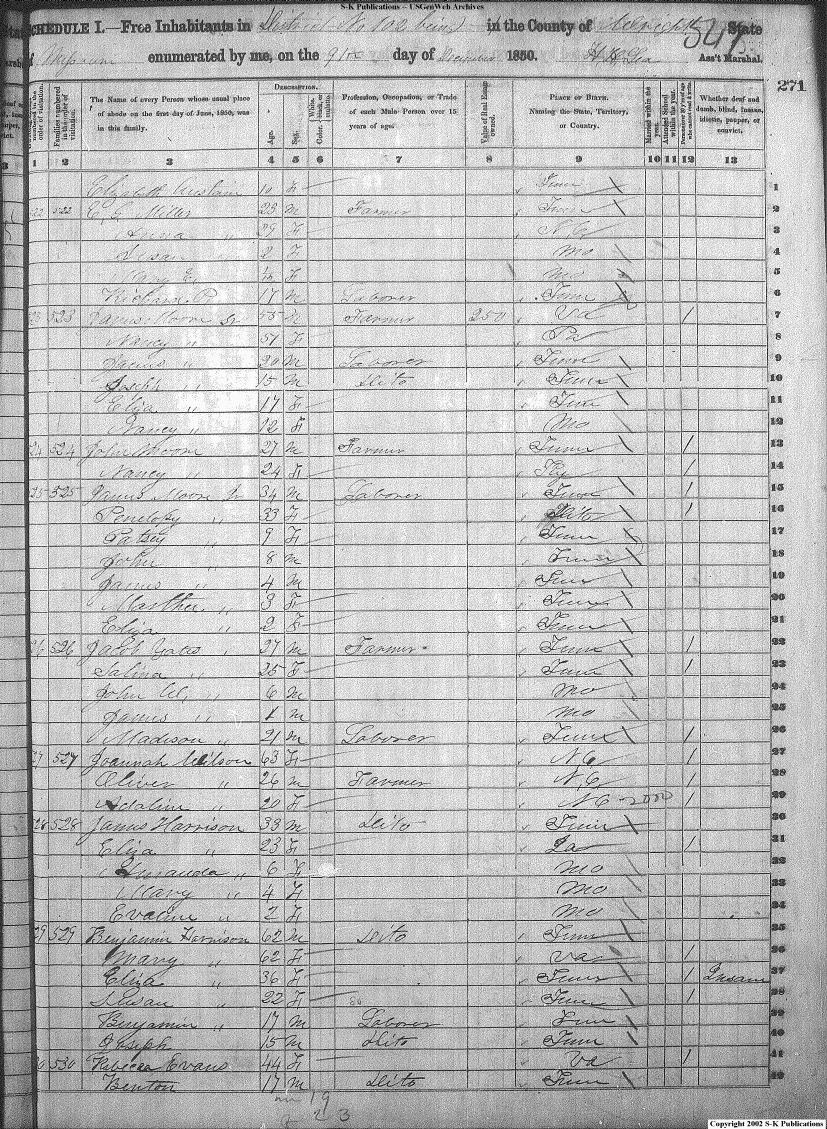 S-K Publications – USGenWeb Archives
SCHEDULE I.—Free Inhabitants in District No 102 in the County of State
of Missouri enumerated by me, on the 9th day of 1850. Ass't Marshal.
271
DESCRIPTION.
The Name of every Person whose usual place of abode on the first day of June, 1850, was in this family.
Age.
Sex.
Color, White, black, or mulatto.
Profession, Occupation, or Trade of each Male Person over 15 years of age.
Value of Real Estate owned.
PLACE OF BIRTH. Naming the State, Territory, or Country.
Married within the year.
Attended School within the year.
Whether deaf and dumb, blind, insane, idiotic, pauper, or convict.
1 2 3 4 5 6 7 8 9 10 11 12 13
Elizabeth 10 F Tenn 1
522 E. G. Miller 23 M Farmer Tenn 2
Anna " 29 F N.C 3
Susan " 2 F Mo 4
Mary E. F Mo 5
Richard P. 17 M Laborer Tenn 6
523 James Moore Sr 55 M Farmer 250 Va / 7
Nancy " 51 F Pa 8
James " 20 M Laborer Tenn 9
Joseph " 15 M Dito Tenn 10
Eliza " 17 F Tenn 11
Nancy " 12 F Mo 12
524 John Moore 27 M Farmer Tenn / 13
Nancy " 24 F Ky / 14
525 James Moore Jr 34 M Laborer Tenn / 15
Penelopy " 33 F Dito / 16
Patsey " 9 F Tenn 17
John " 8 M Tenn 18
James " 4 M Tenn 19
Marther " 3 F Tenn 20
Eliza " 2 F Tenn 21
526 Jacob Yates 27 M Farmer Tenn / 22
Salina " 25 F Tenn / 23
John W. " 6 M Mo 24
James " 1 M Mo 25
Madison " 21 M Laborer Tenn / 26
527 Joannah Wilson 63 F N.C. / 27
Oliver " 26 M Farmer N.C. / 28
Adaline " 20 F N.C / 29
528 James Harrison 33 M Dito Tenn 30
Eliza " 23 F / 31
" 6 F Mo 32
Mary " 4 F Mo 33
Evaline " 2 F Mo 34
529 Benjamin Harrison 62 M Dito Tenn 35
Mary " 62 F Va / 36
Eliza " 36 F Tenn / Insane 37
Susan " 22 F Tenn / 38
Benjamin " 17 M Laborer Tenn 39
Joseph 15 M Dito Tenn 40
530 Rebecca Evans 44 F Va / 41
Benton 17 M Dito Tenn 42
19
23
Copyright 2002 S-K Publications